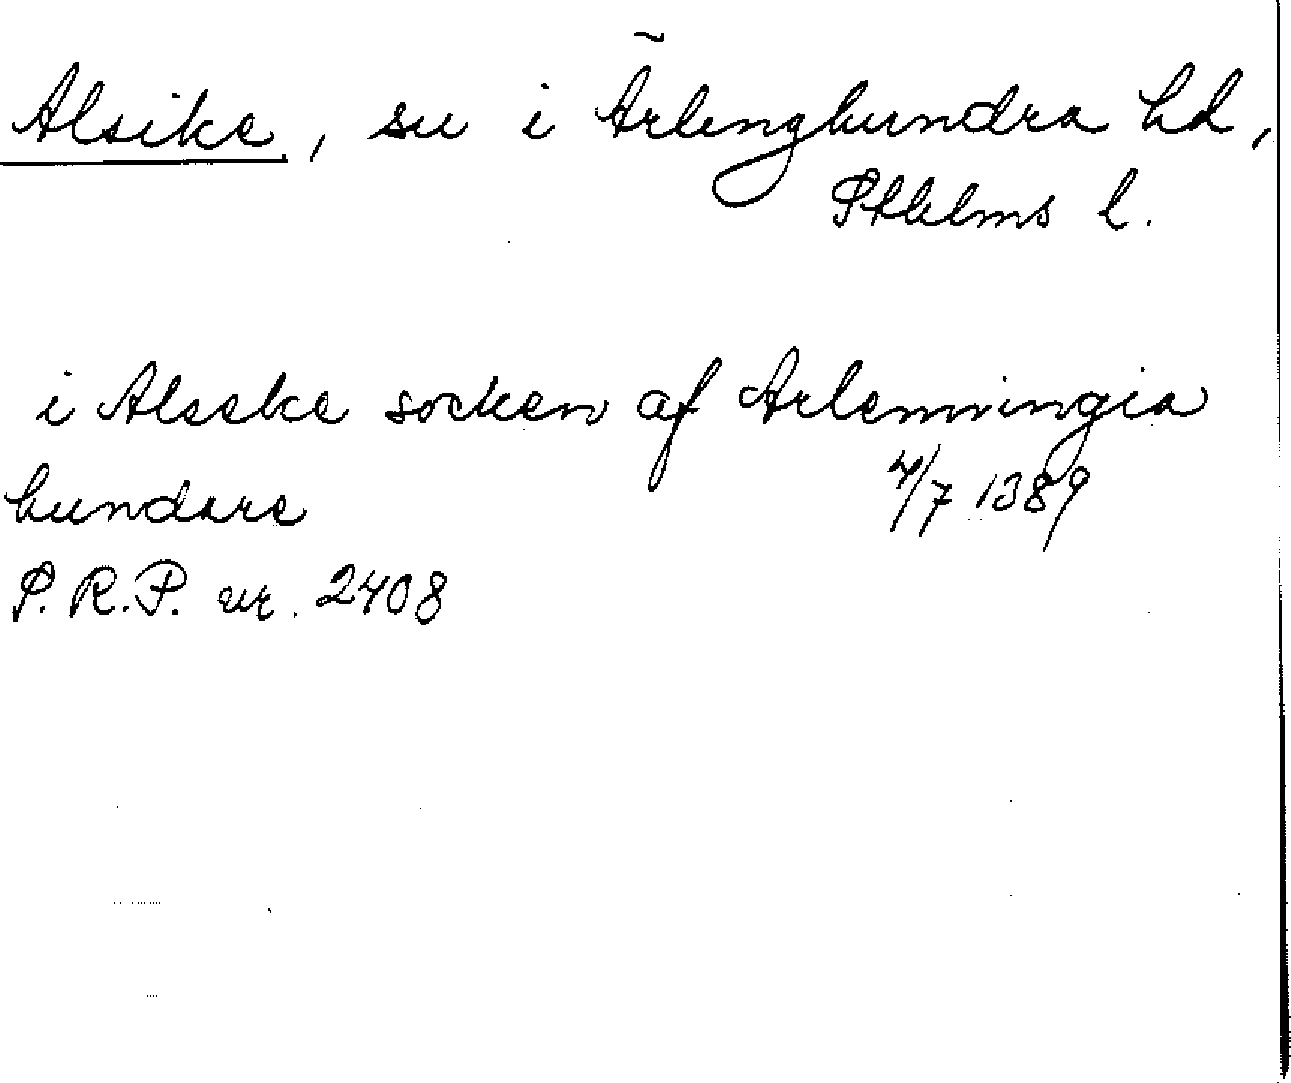 Alsike, sn i Ärlinghundra hd,
Sthlms l.
i Alseke socken af Arlenningia
hundare 4/7 1389
S.R.P. nr. 2408